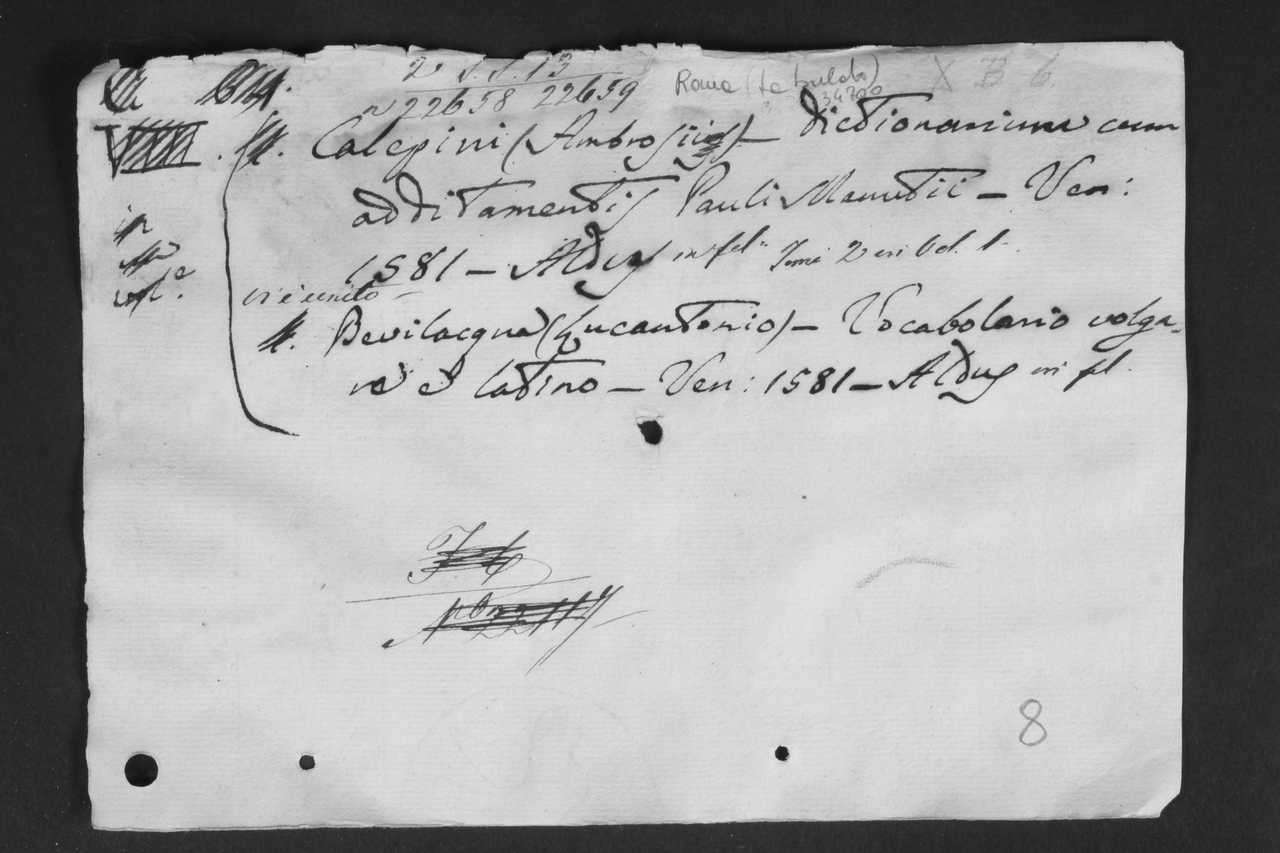 22658 22659
Roma
X B 6.
Calepini (Ambrosii) – Dictionarium cum
additamentis Pauli Manutii – Ven:
1581 – Aldus in fol. Tomi 2 in Vol. 1.
vi è unito –
Bevilacqua (Lucantonio) – Vocabolario volga-
re è latino – Ven: 1581 – Aldus in fol.
8